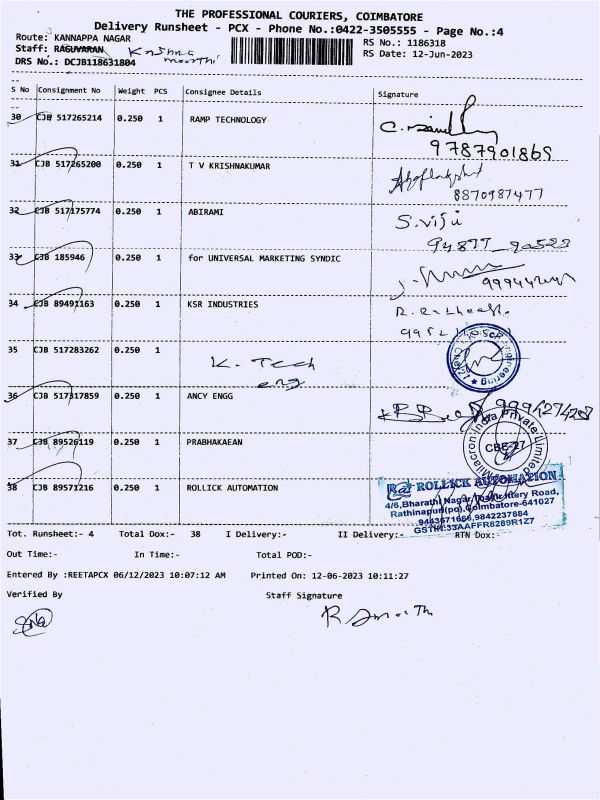 THE PROFESSIONAL COURIERS, COIMBATORE
Delivery Runsheet - PCX - Phone No.:0422-3505555 - Page No.:4
Route: KANNAPPA NAGAR
RS No.: 1186318
Staff: RAGUVARAN Krishna moorthi
RS Date: 12-Jun-2023
DRS No.: DCJB118631804
S No Consignment No Weight PCS Consignee Details Signature
30 CJB 517265214 0.250 1 RAMP TECHNOLOGY
9787901869
31 CJB 517265200 0.250 1 T V KRISHNAKUMAR
8870987477
32 CJB 517175774 0.250 1 ABIRAMI S.viji
94877
33 CJB 185946 0.250 1 for UNIVERSAL MARKETING SYNDIC
34 CJB 89491163 0.250 1 KSR INDUSTRIES
35 CJB 517283262 0.250 1 K. Tech
eng
36 CJB 517317859 0.250 1 ANCY ENGG
9994274208
37 CJB 89526119 0.250 1 PRABHAKAEAN
Milacron India Private Limited
CBE-27
38 CJB 89571216 0.250 1 ROLLICK AUTOMATION
ROLLICK AUTOMATION
4/6,Bharathi Nagar, Road,
Rathinapuri(po),Coimbatore-641027
9443671666,9842237884
GSTIN:33AAFFR8289R1Z7
Tot. Runsheet:- 4 Total Dox:- 38 I Delivery:- II Delivery:- RTN Dox:-
Out Time:- In Time:- Total POD:-
Entered By :REETAPCX 06/12/2023 10:07:12 AM Printed On: 12-06-2023 10:11:27
Verified By Staff Signature